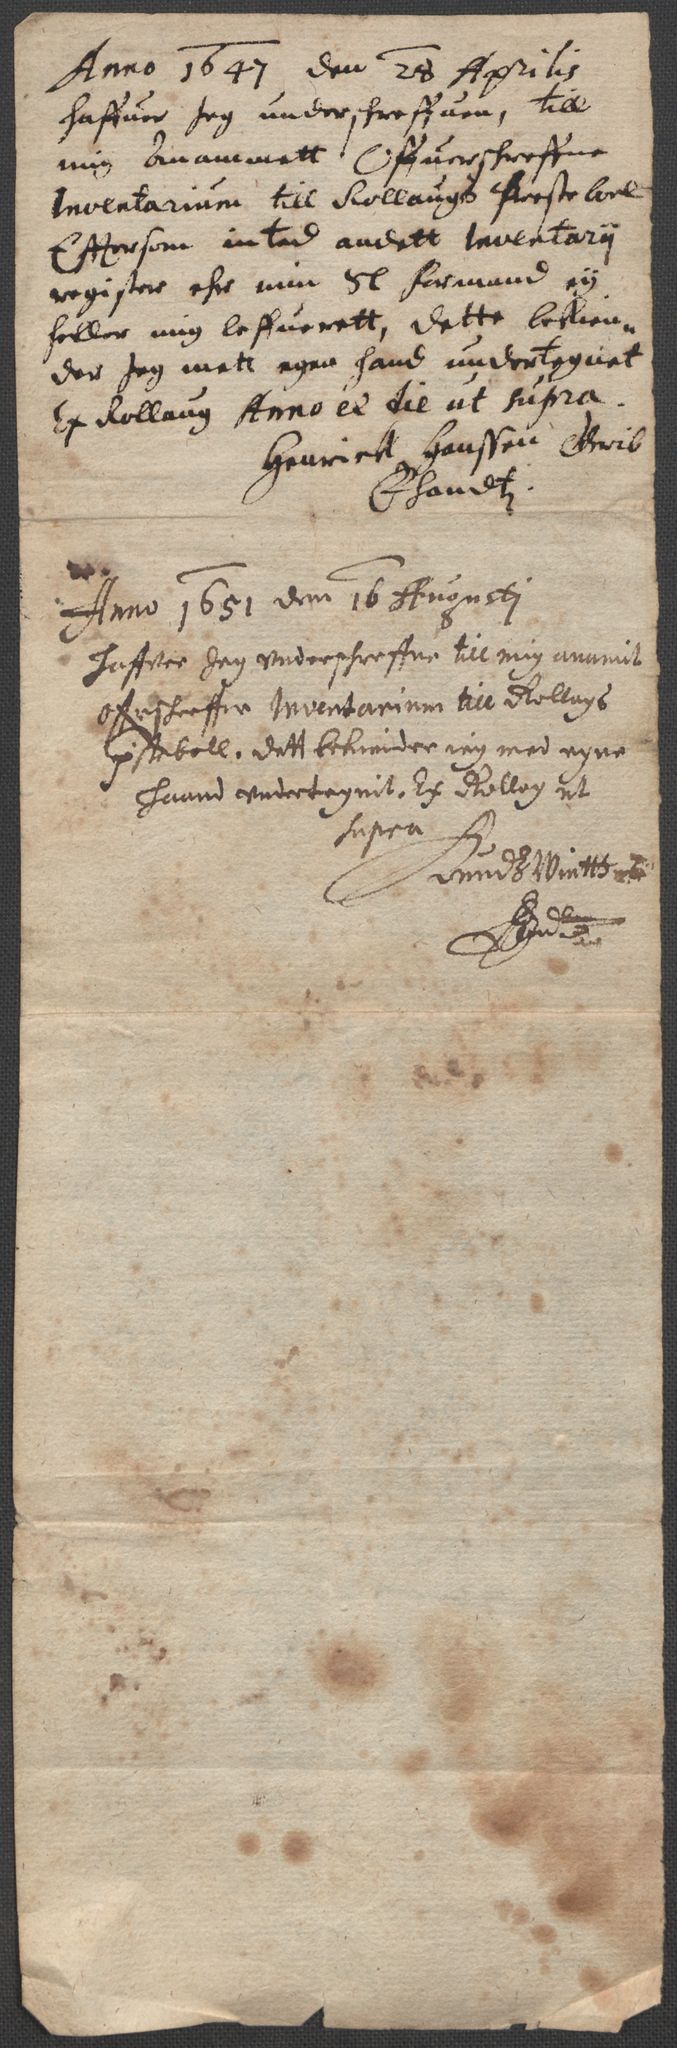 Anno 1647 den 28 Aprilis
haffuer Jeg underschreffuen, till
mig Anammett Offuerschreffne
Inventarium till Rollaugs Presteboel
Efftersom inted andett Inventarij
register ehr min Sl formand ey
heller mig leffuerett, dette bekien-
der Jeg mett egen hand undertegnet
Ex Rollaug Anno et die ut supra.
Henrick Hanssen
Ehandtz.
Anno 1651 dem 16 Augustj
Haffver Jeg vnderschreffne till mig anamit
ofrschreffne Inventarium till Rollogs
psteboll. dett bekiender ieg med egne
Haand vndertegnit. Ex Rollog ut
supra